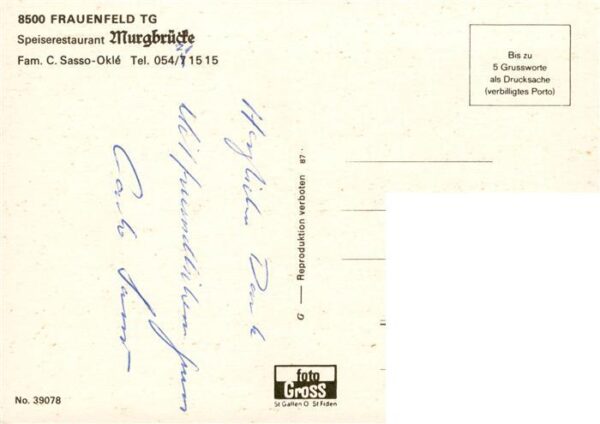 8500 FRAUENFELD TG
Speiserestaurant Murgbrücke
Fam. C. Sasso-Oklé Tel. 054/7 15 15
Bis zu
5 Grussworte
als Drucksache
(verbilligtes Porto)
Herzlichen Dank
Mit freundlichem Gruss
G — Reproduktion verboten 87
foto
Gross
St Gallen O St Fiden
No. 39078